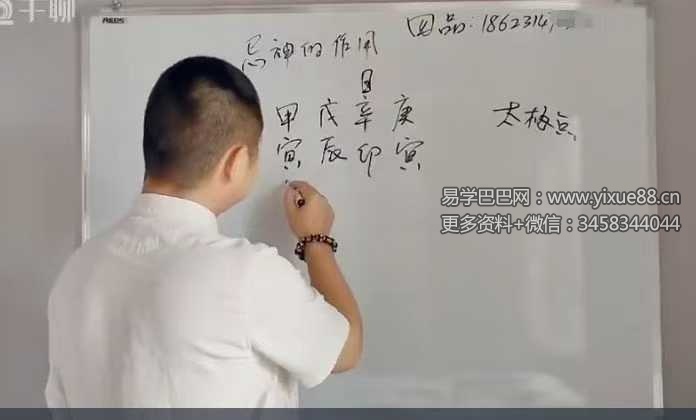 千聊
因品:18623141
忌神的作用
日
甲戊辛庚
寅辰卯寅
太极点
易学巴巴网：www.yixue88.cn
更多资料+微信：3458344044